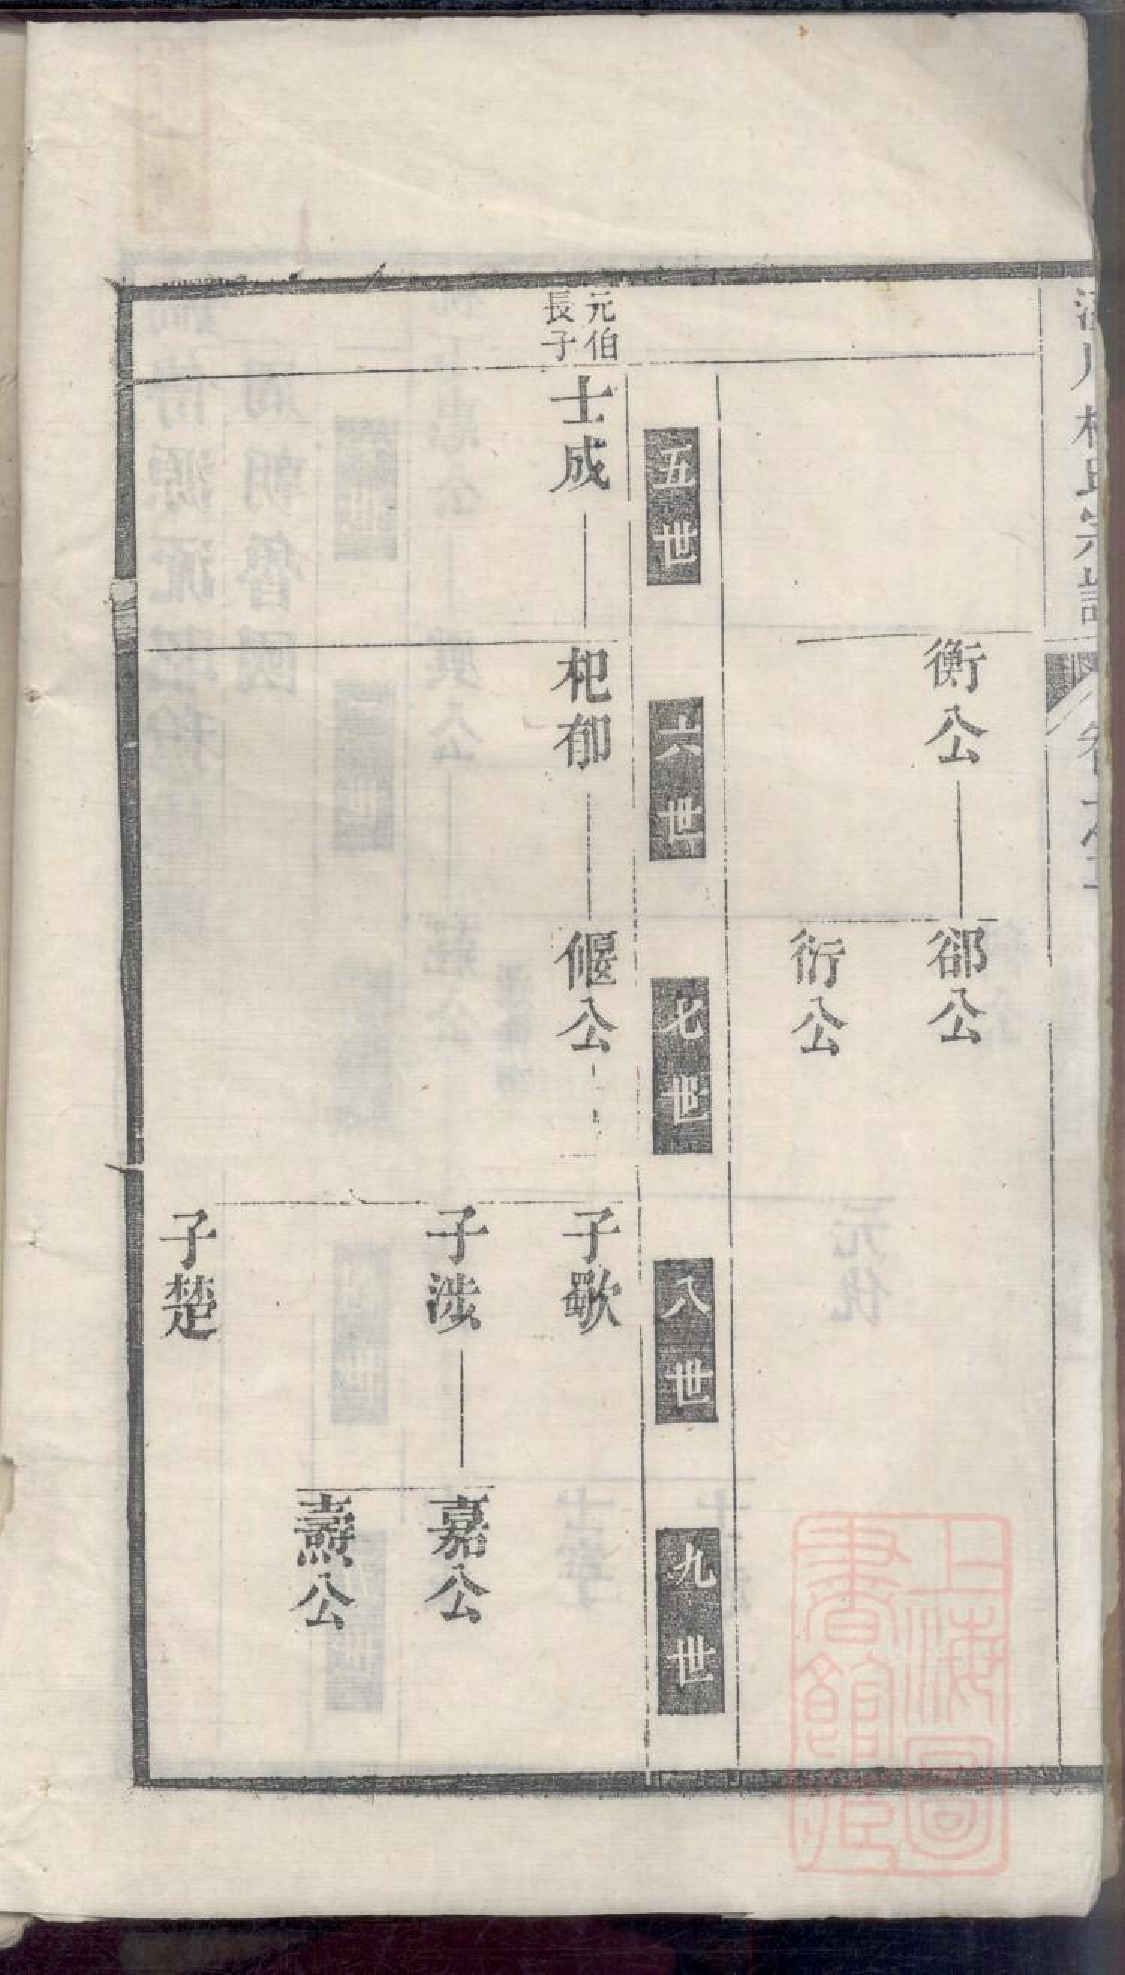 衡公
郤公
衍公
五世
六世
七世
八世
九世
元伯
長子
士成
杞郁
偃公
子歜
子涉
嘉公
壽公
子楚
上海圖
書館藏